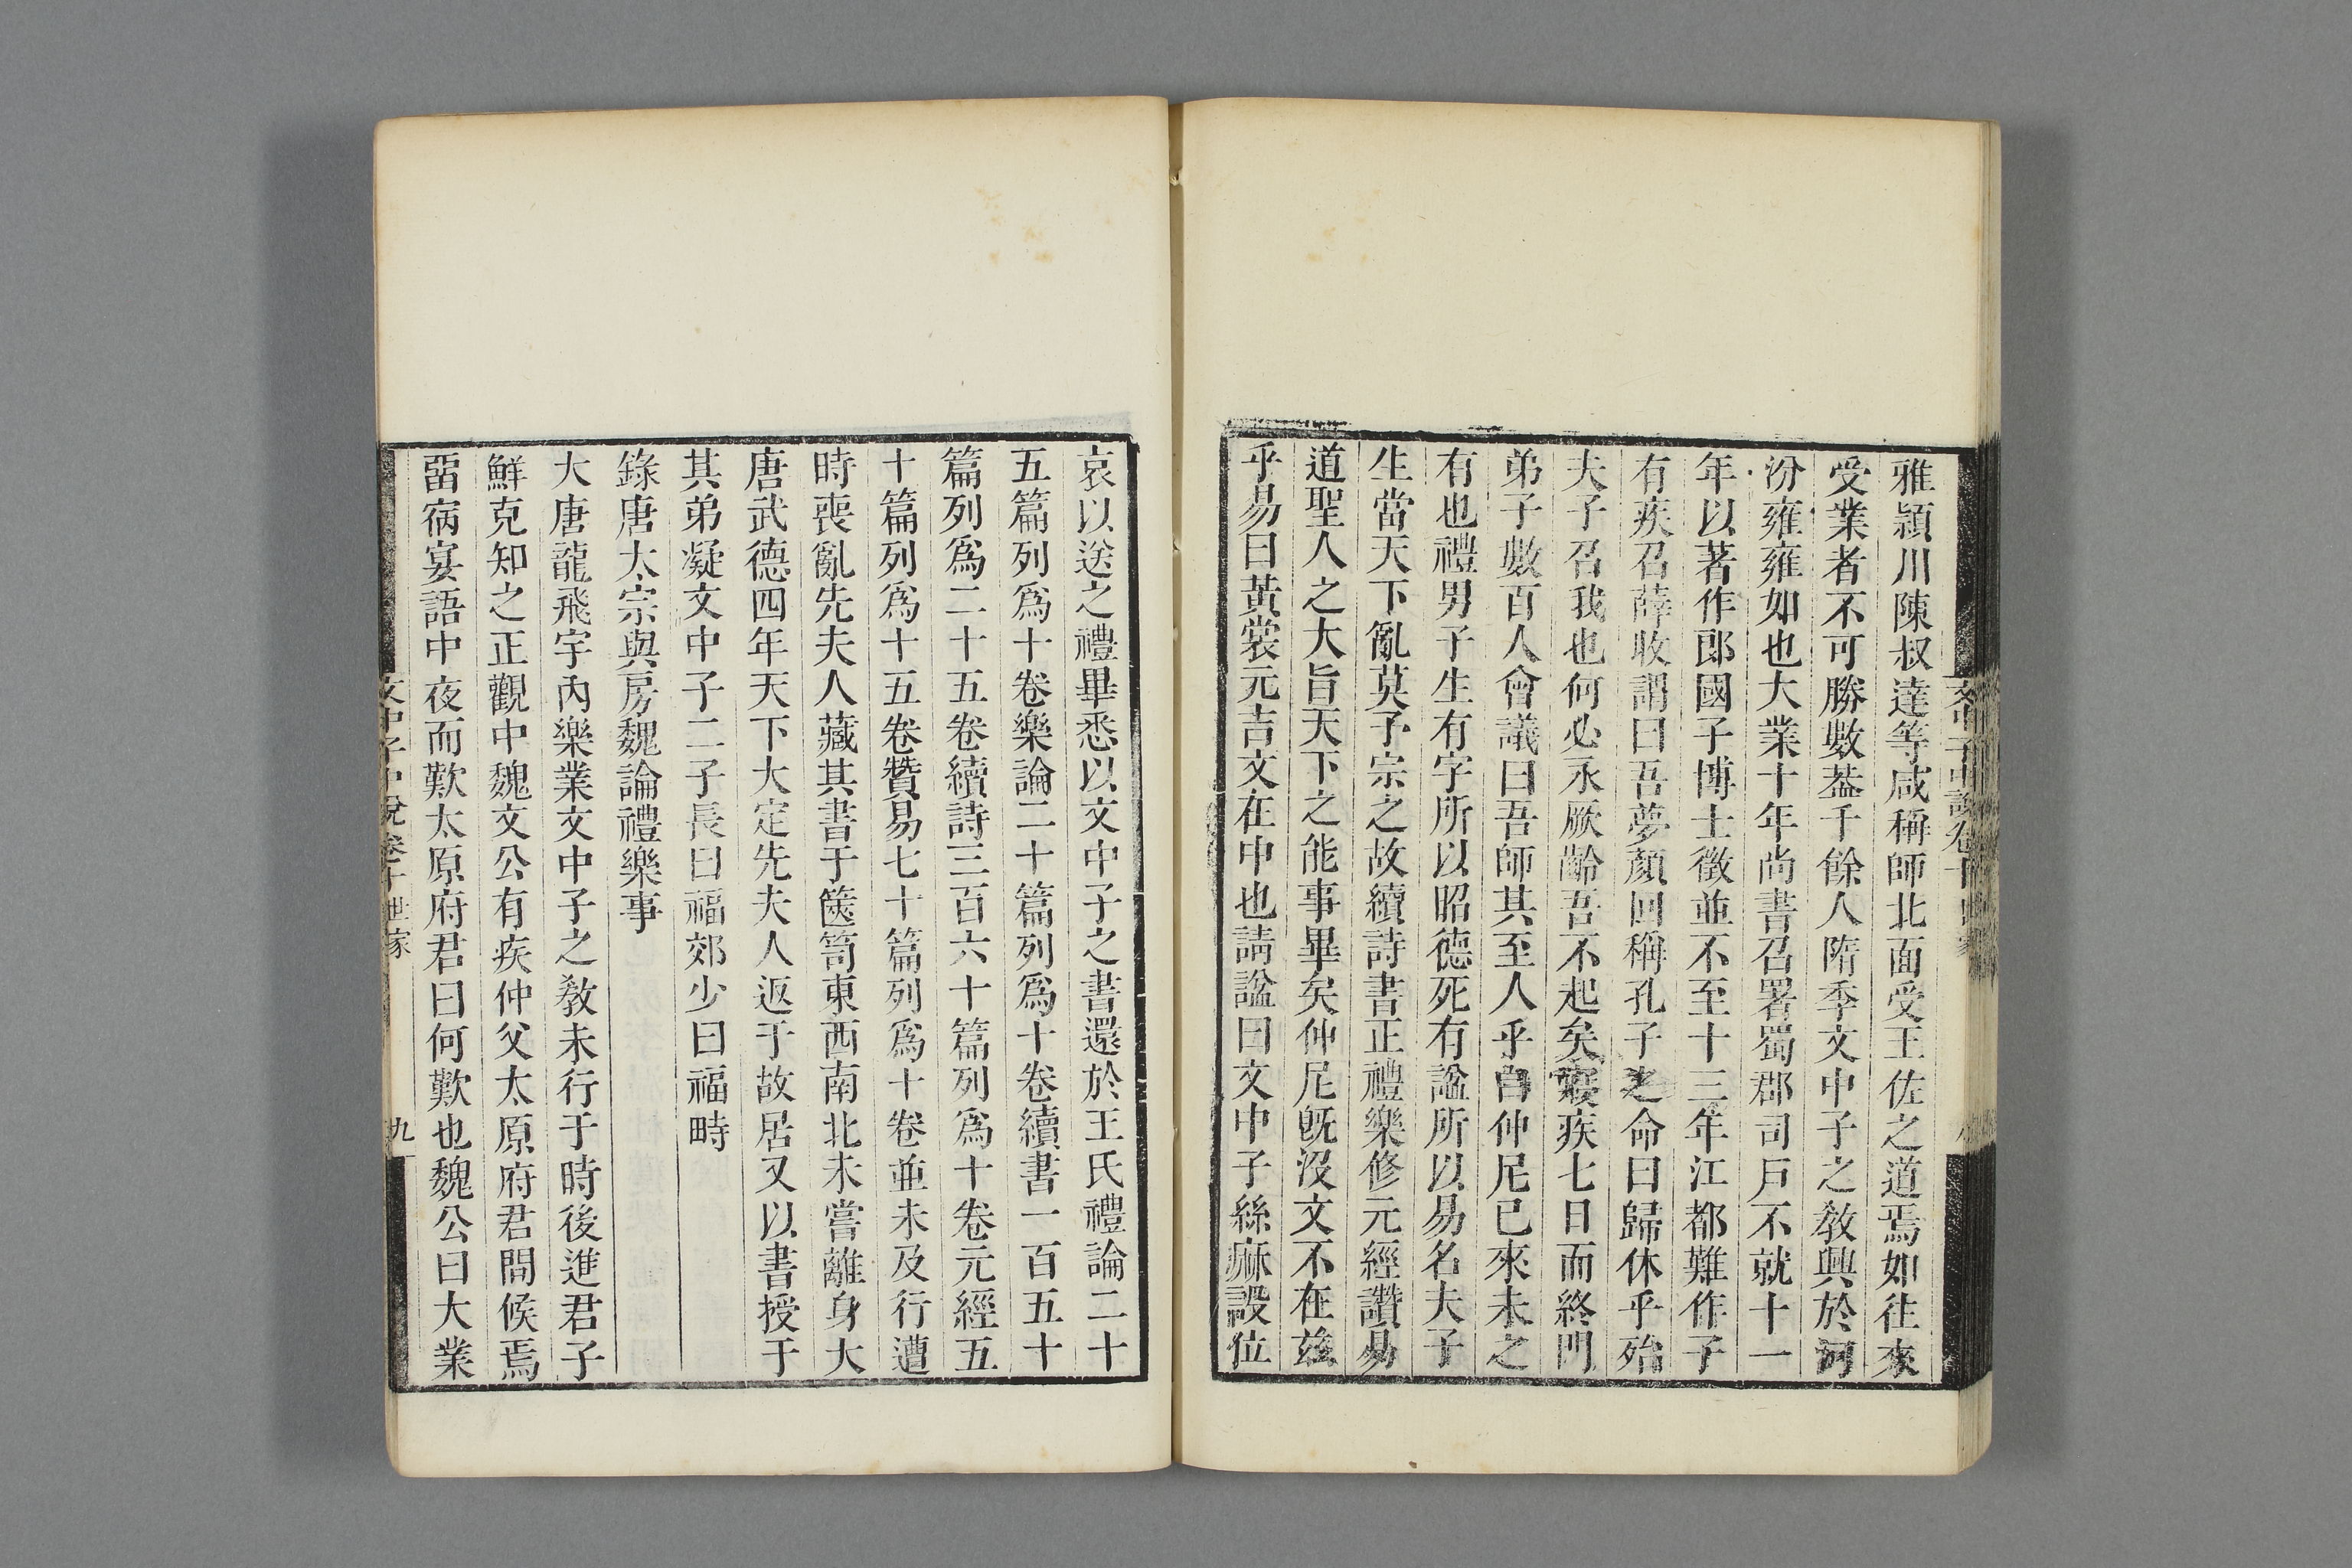 雅潁川陳叔達等咸稱師北面受王佐之道焉如往來
受業者不可勝數葢千餘人隋季文中子之敎興於河
汾雍雍如也大業十年尚書召署蜀郡司戸不就十一
年以著作郎國子博士徵並不至十三年江都難作子
有疾召薛收謂曰吾夢顏回稱孔子之命曰歸休乎殆
夫子召我也何必永厥齡吾不起矣寢疾七日而終門
弟子數百人會議曰吾師其至人乎自仲尼已來未之
有也禮男子生有字所以昭德死有謚所以易名夫子
生當天下亂莫予宗之故續詩書正禮樂修元經讚易
道聖人之大旨天下之能事畢矣仲尼旣沒文不在茲
乎易曰黃裳元吉文在中也請謚曰文中子絲麻設位
文中子中說卷十 世家
哀以送之禮畢悉以文中子之書還於王氏禮論二十
五篇列爲十卷樂論二十篇列爲十卷續書一百五十
篇列爲二十五卷續詩三百六十篇列爲十卷元經五
十篇列爲十五卷贊易七十篇列爲十卷並未及行遭
時喪亂先夫人藏其書于篋笥東西南北未嘗離身大
唐武德四年天下大定先夫人返于故居又以書授于
其弟凝文中子二子長曰福郊少曰福畤
錄唐太宗與房魏論禮樂事
大唐龍飛宇內樂業文中子之敎未行于時後進君子
鮮克知之正觀中魏文公有疾仲父太原府君問候焉
畱宿宴語中夜而歎太原府君曰何歎也魏公曰大業
文中子中說卷十 世家 九